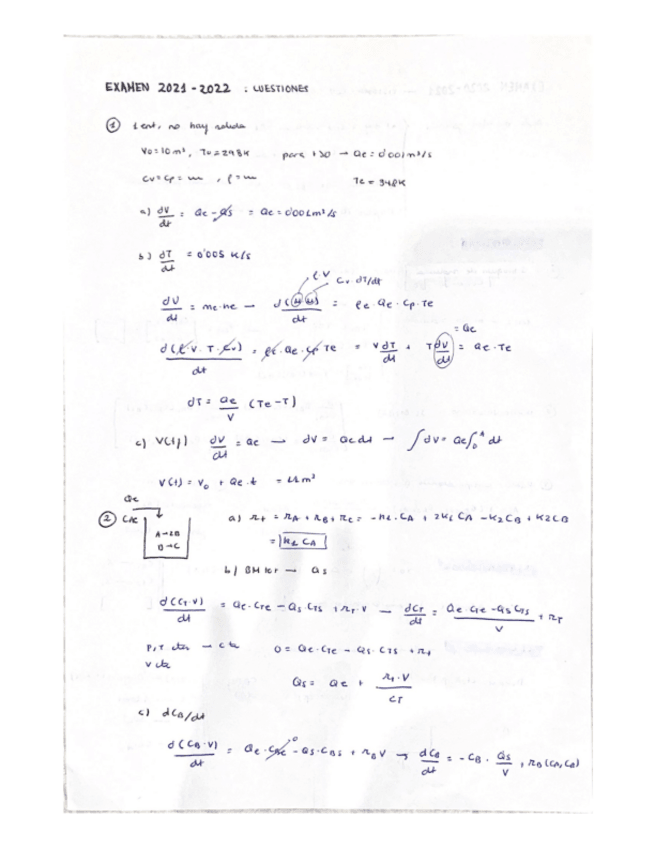 EXAMEN 2021-2022 : CUESTIONES
① 1 ent, no hay salida
V0=10m³, T0=298K para t>0 → Qe=0'001m³/s
Cv=Cp=m , ρ=m Te=348K
a) dV/dt = Qe-Qs = Qe=0'001m³/s
b) dT/dt = 0'005 K/s
ρ.V Cv.dT/dt
dU/dt = me.he → d( )/dt = ρe.Qe.Cp.Te
= Qe
d(ρ.V.T.Cv)/dt = ρe.Qe.Cp Te = V dT/dt + T dV/dt = Qe.Te
dT = Qe/V (Te-T)
c) V(t) dV/dt = Qe → dV = Qe dt → ∫dV = Qe∫ dt
V(t) = V0 + Qe.t = 11m³
Qe
② CAe a) rT = rA + rB + rC = -k1.CA + 2K1CA - K2CB + K2CB
A→2B
B→C
= k1 CA
b) BM tot → Qs
d(CT.V)/dt = Qe.CTe - Qs.CTs + rT.V → dCT/dt = Qe.CTe - QsCTs/V + rT
P, T ctes → C cte 0 = Qe.CTe - Qs.CTS + rT
V cte
Qs = Qe + rT.V/CT
c) dCB/dt
d(CB.V)/dt = Qe.CBe - Qs.CBs + rBV → dCB/dt = -CB.Qs/V + rB(CA,CB)